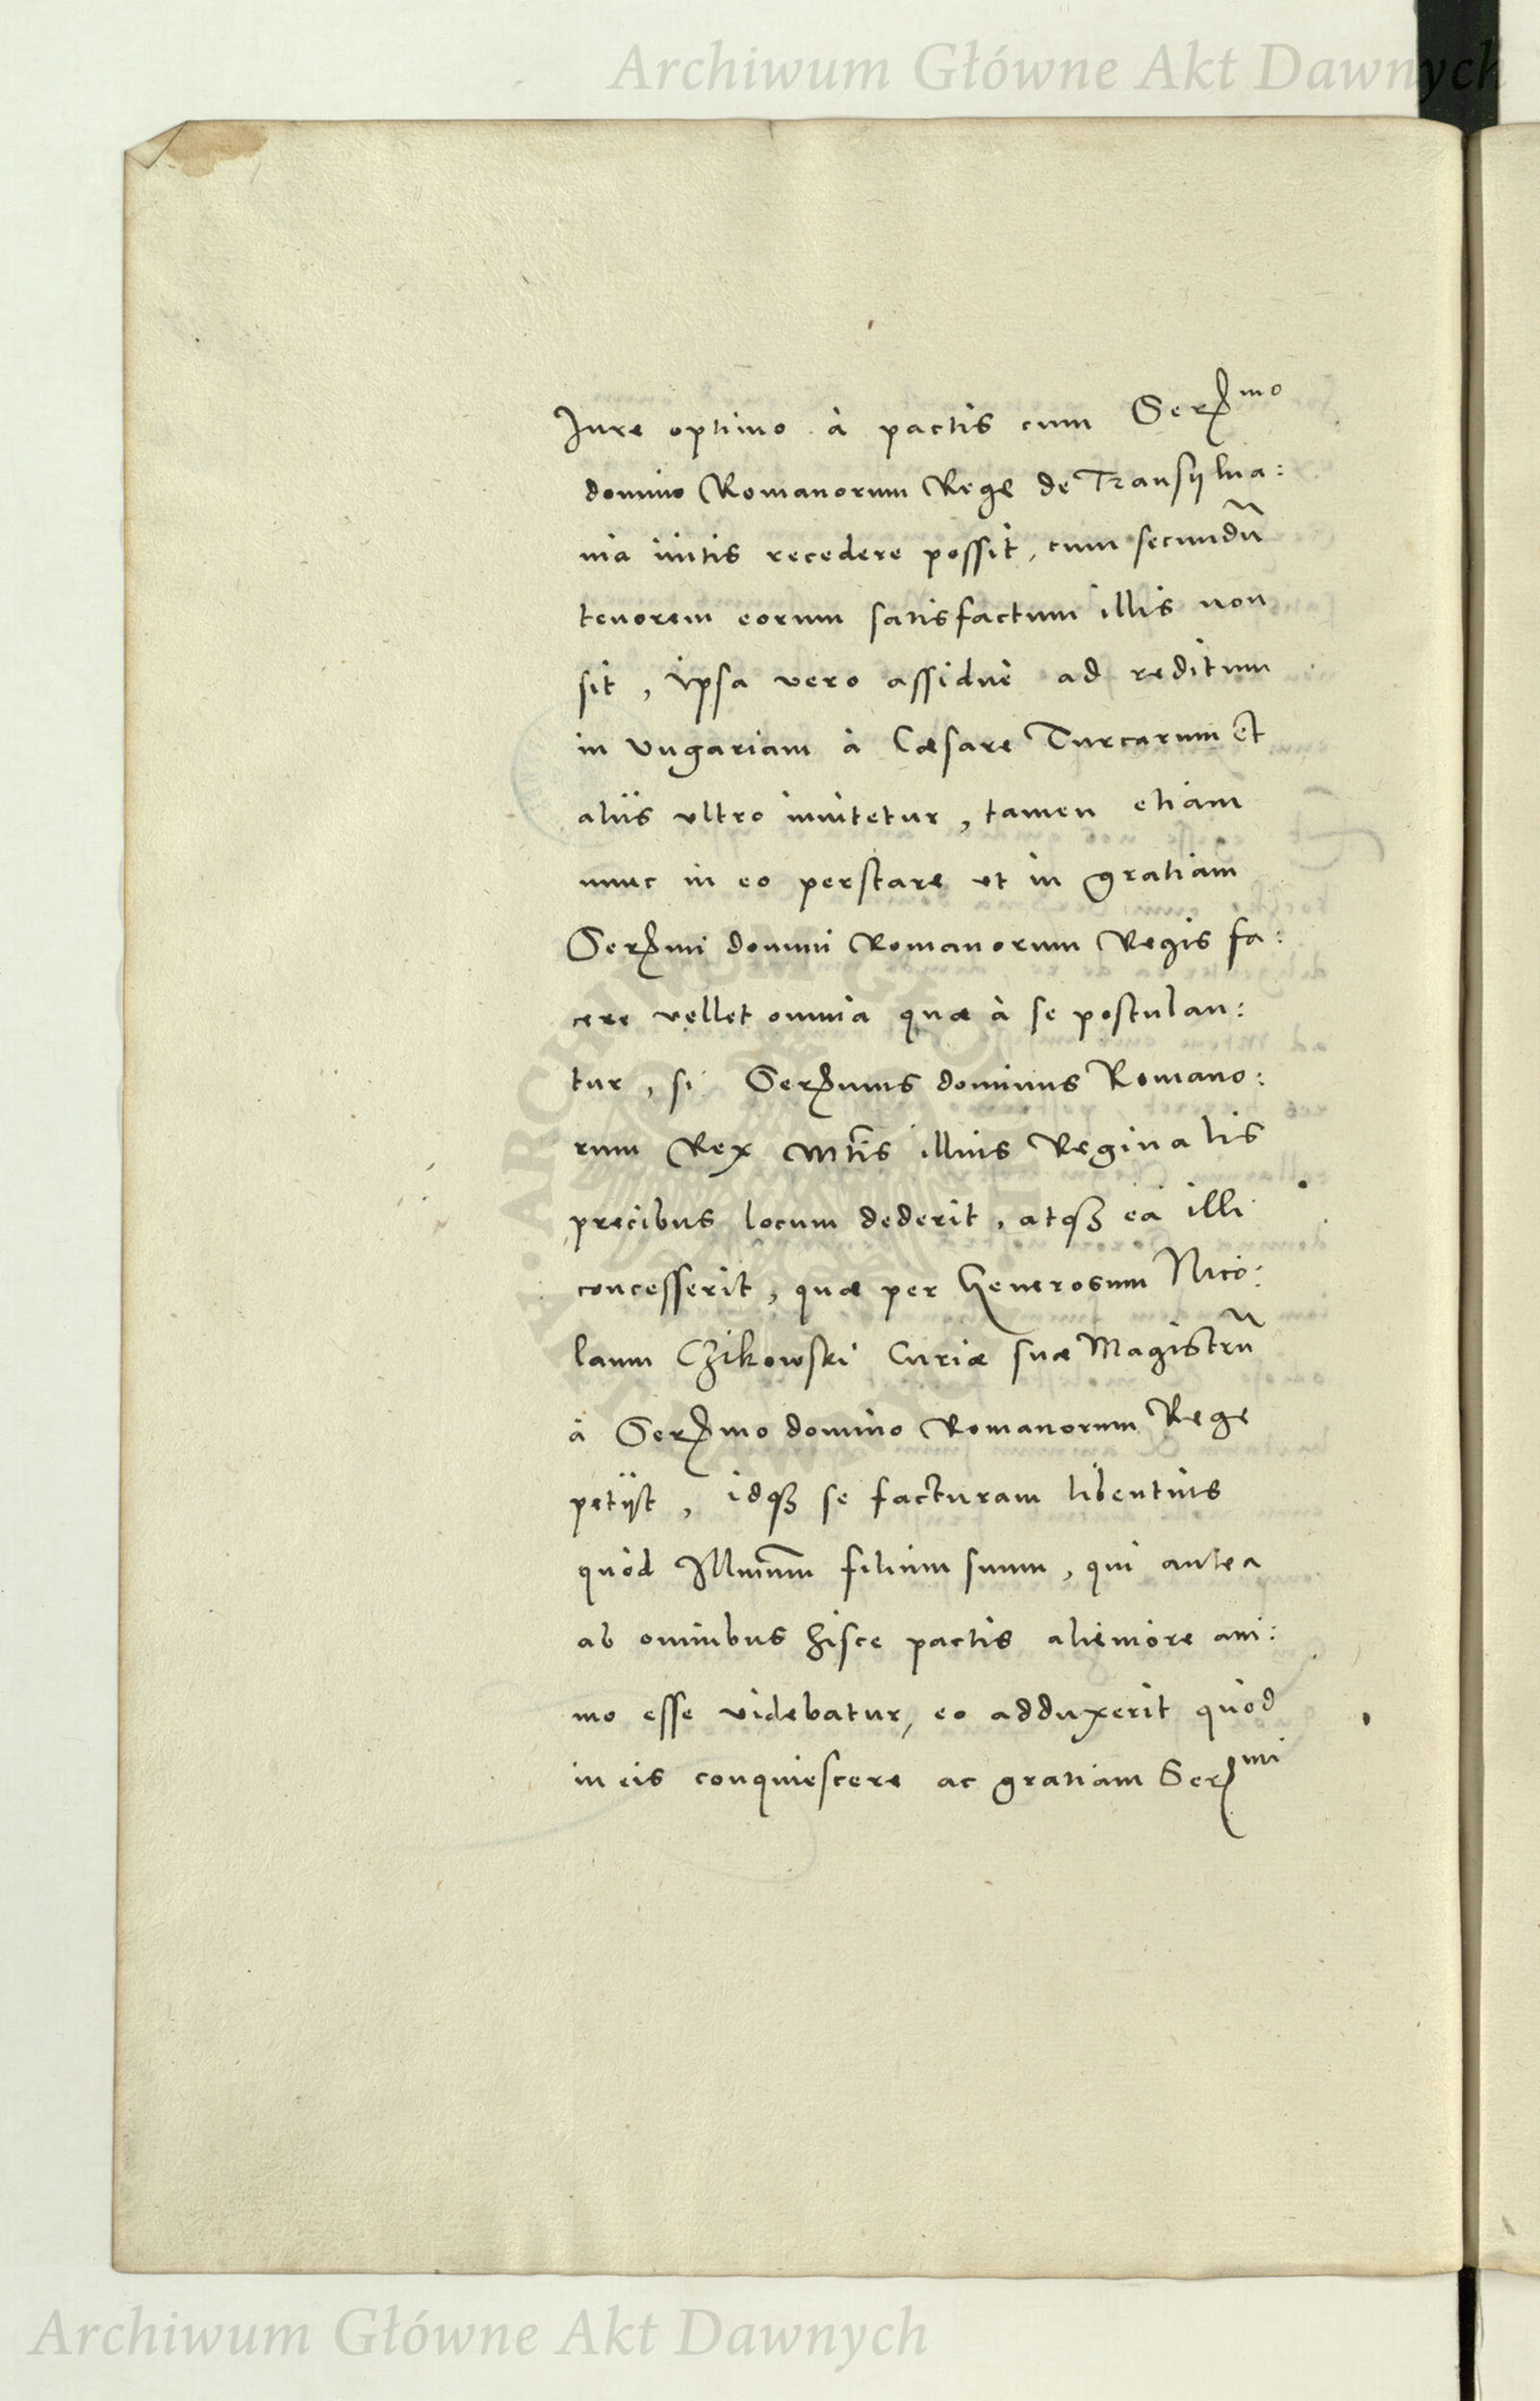 Archiwum Główne Akt Dawnych
Jure optimo à pactis cum Serᵐᵒ
domino Romanorum Rege de Transylua:
nia initis recedere possit, cum secundũ
tenorem eorum satisfactum illis non
sit, ipsa vero assidue ad reditum
in Vngariam à Cæsare Turcarum et
aliis vltro inuitetur, tamen etiam
nunc in eo perstare vt in gratiam
Serᵐⁱ domini Romanorum Regis fa:
cere vellet omnia quæ à se postulan:
tur, si Serᵐᵘˢ dominus Romano:
rum Rex Mtis illius Reginalis
precibus locum dederit, atqȝ ea illi
concesserit, quæ per Generosum Nico:
laum Czikowski Curiæ suæ Magistrũ
à Serᵐᵒ domino Romanorum Rege
petijt, idqȝ se facturam libentius
quòd Illmum filium suum, qui antea
ab omnibus hisce pactis alieniore ani:
mo esse videbatur, eo adduxerit quod
in eis conquiescere ac gratiam Serᵐⁱ
Archiwum Główne Akt Dawnych